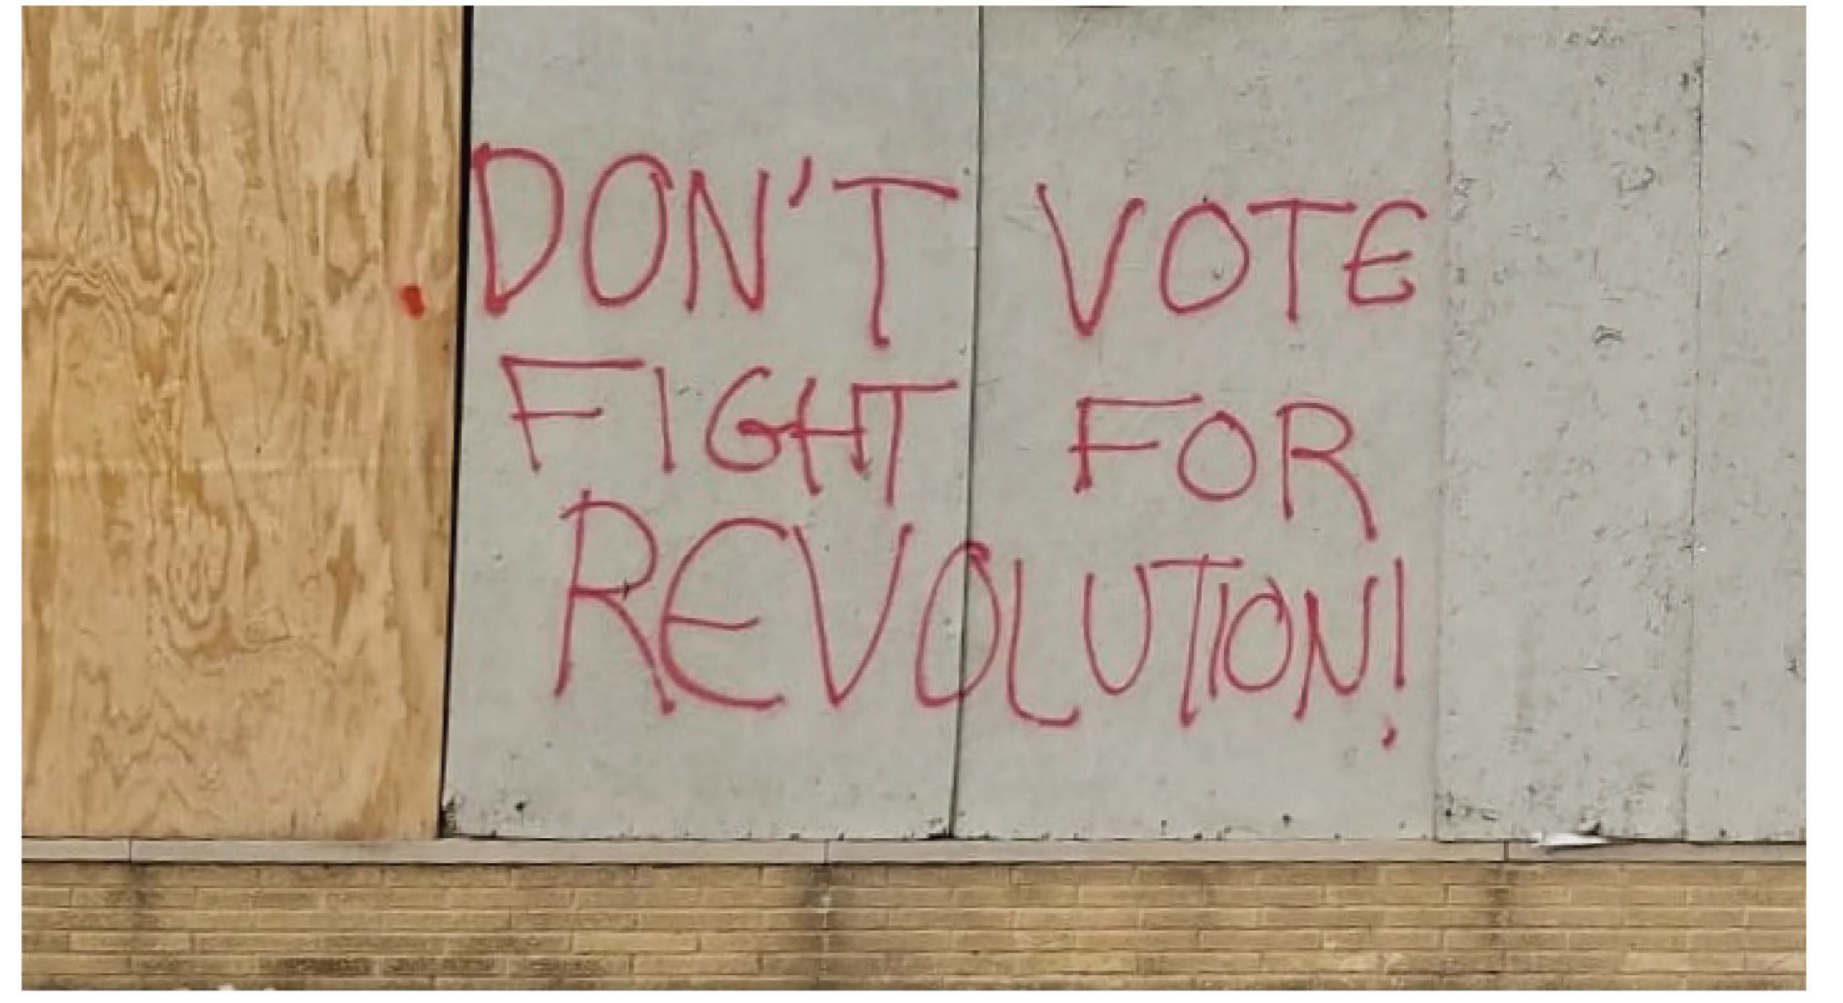 DON'T VOTE
FIGHT FOR
REVOLUTION!